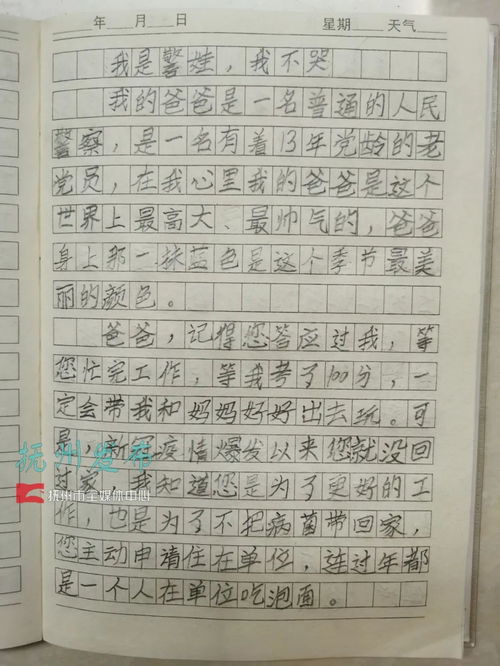 年 月 日 星期 天气
我是警娃，我不哭
我的爸爸是一名普通的人民
警察，是一名有着13年党龄的老
党员，在我心里我的爸爸是这个
世界上最高大、最帅气的，爸爸
身上那一抹蓝色是这个季节最美
丽的颜色。
爸爸，记得您答应过我，等
您忙完工作，等我考了100分，一
定会带我和妈妈好好出去玩。可
是，新年疫情爆发以来您就没回
过家，我知道您是为了更好的工
作，也是为了不把病菌带回家，
您主动申请住在单位，连过年都
是一个人在单位吃泡面。
抚州发布
抚州市全媒体中心